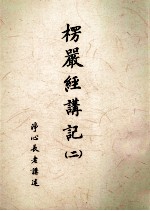 楞嚴經講記(二)
淨心長老講述